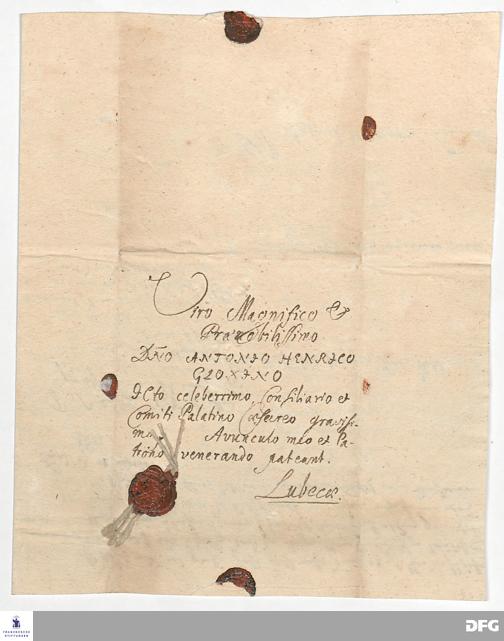 Viro Magnifico &
Prænobilissimo
Dño ANTONIO HENRICO
GLOXINO
JCto celeberrimo, Consiliario et
Comiti Palatino Cæsareo gravissi-
mo, Avunculo meo et Pa-
trono venerando pateant.
Lubecæ.
FRANCKESCHE
STIFTUNGEN
DFG